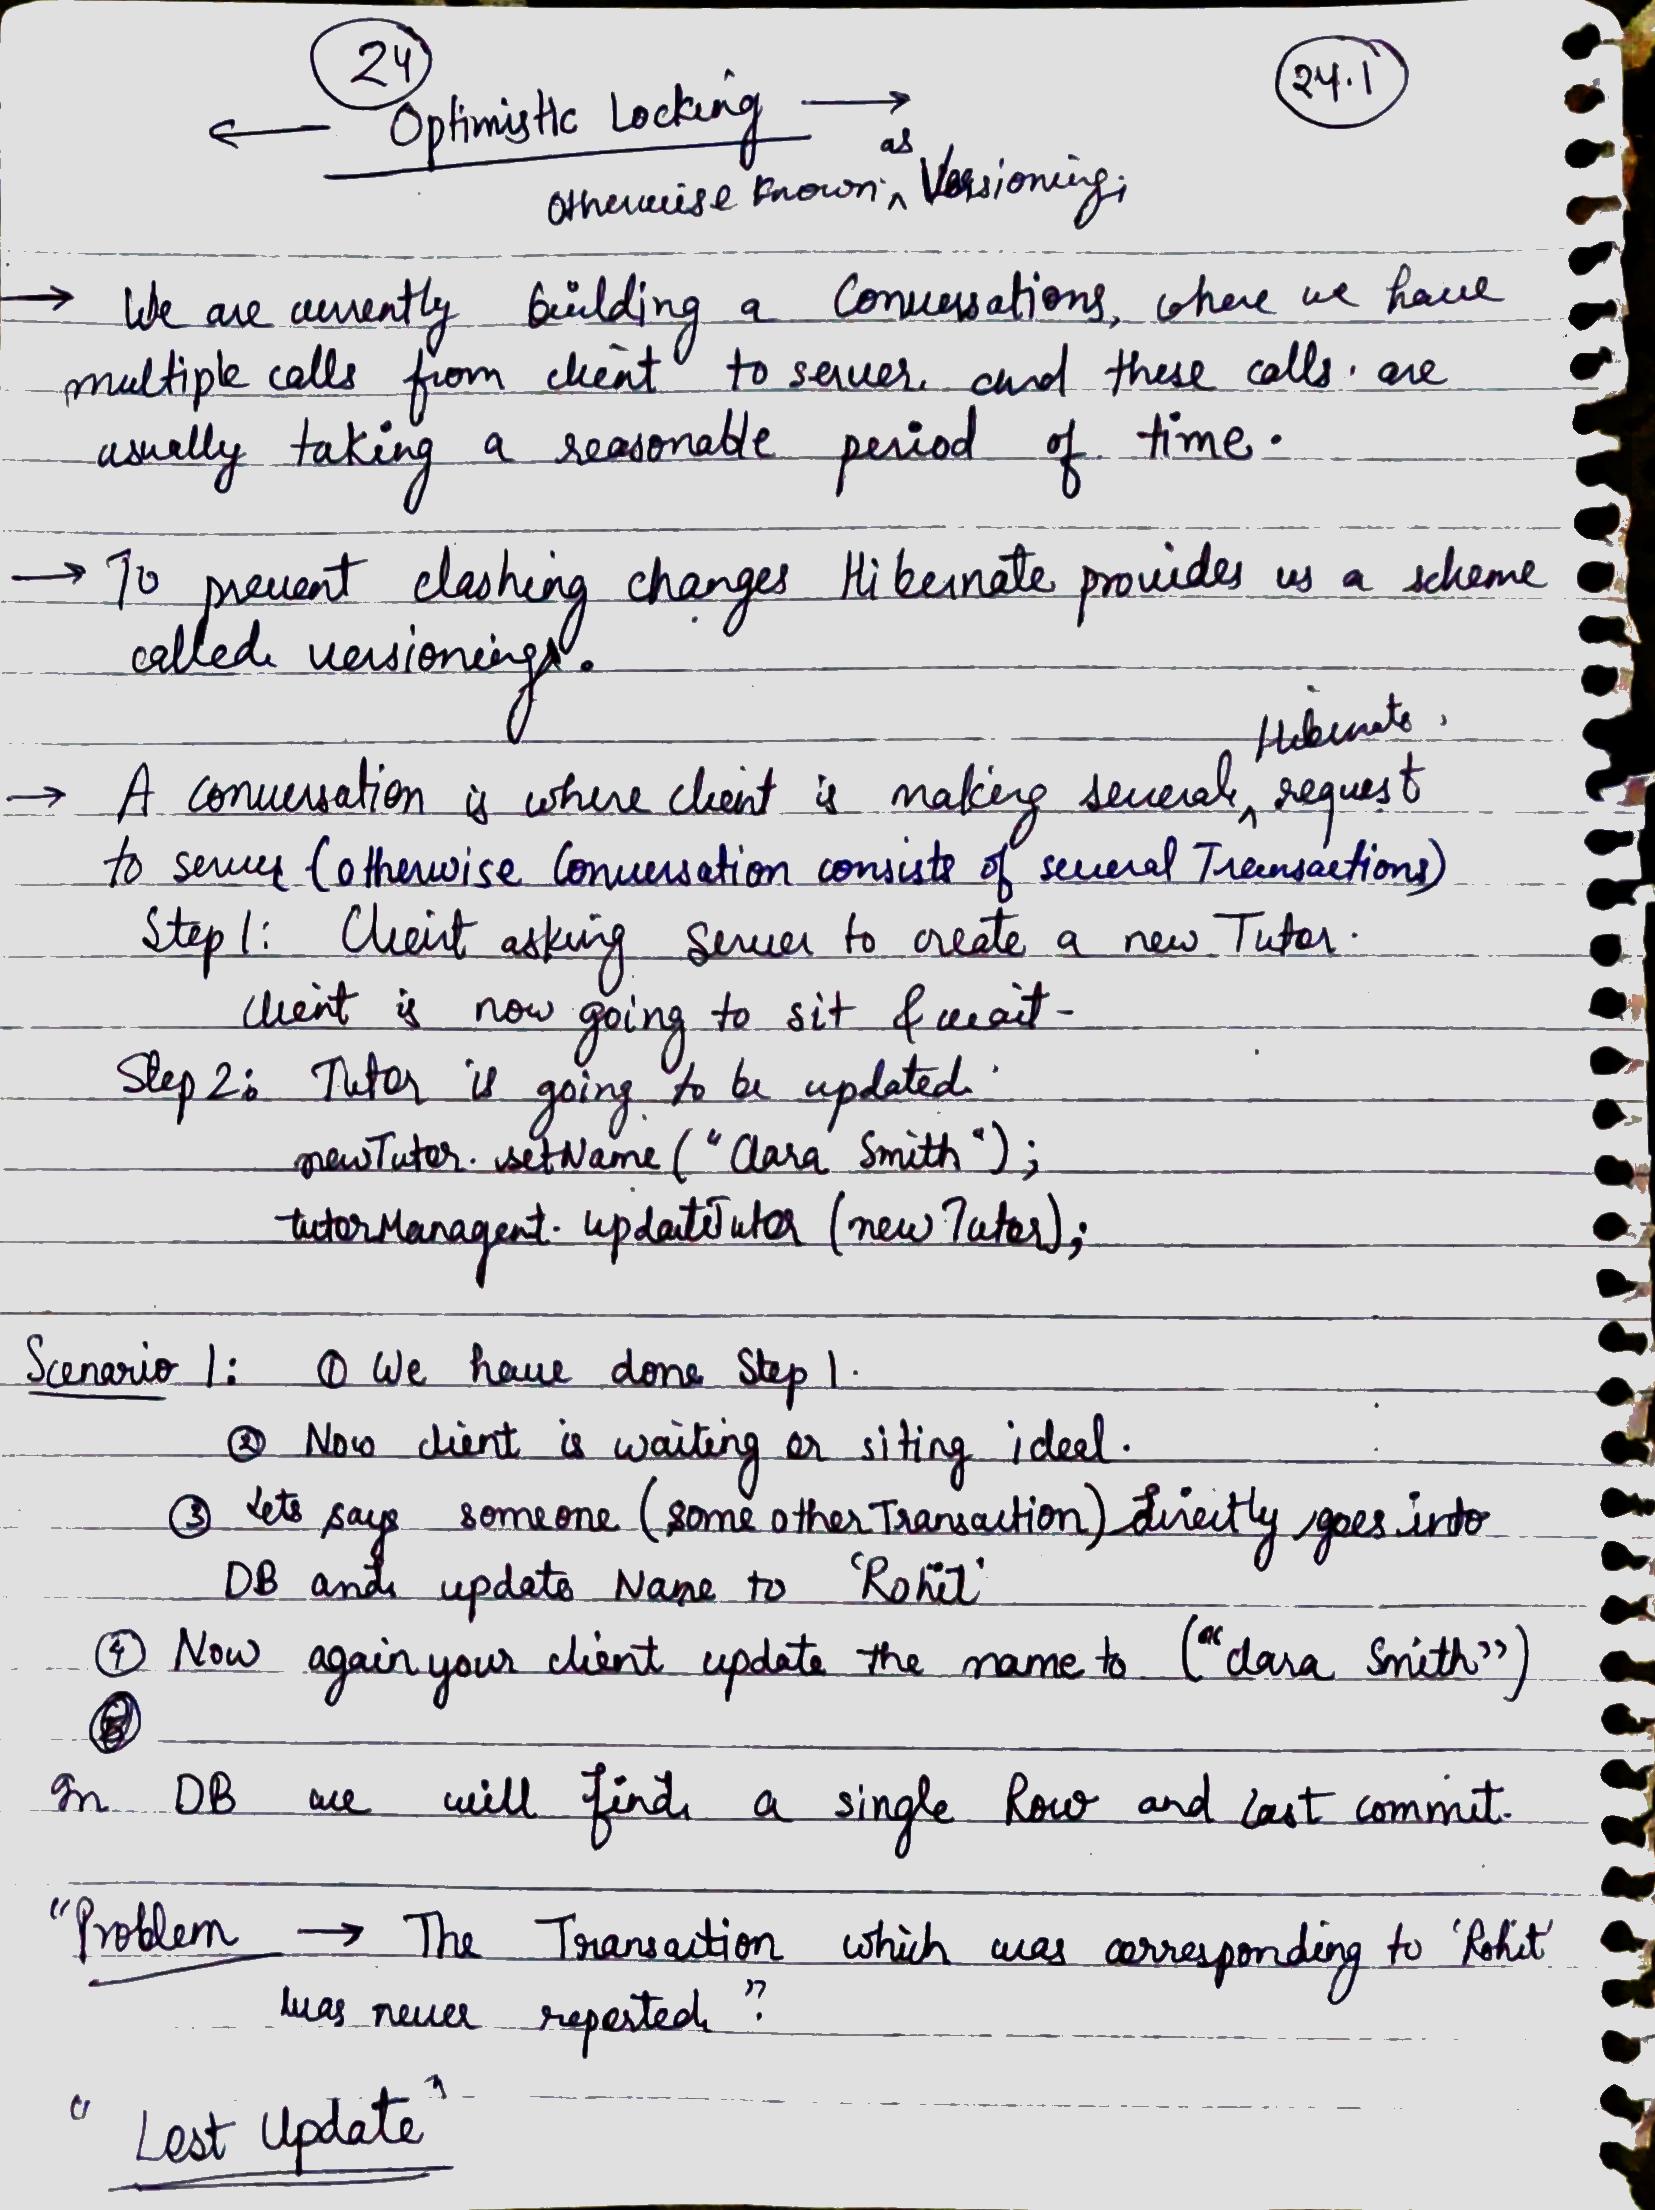 24
24.1
← Optimistic Locking →
Otherwise Known as Versioning;
→ We are currently building a Conversations, where we have
multiple calls from client to server and these calls are
usually taking a reasonable period of time.
→ To prevent clashing changes Hibernate provides us a scheme
called versioning.
→ A conversation is where client is making several Hibernate request
to server (otherwise Conversation consists of several Transactions)
Step 1: Client asking Server to create a new Tutor.
client is now going to sit & wait-
Step 2: Tutor is going to be updated.
newTutor.setName("Clara Smith");
tutorManagent.updateTutor(newTutor);
Scenario 1: ① We have done Step 1.
② Now client is waiting or siting ideel.
③ Lets says someone (some other Transaction) directly goes into
DB and update Name to 'Rohit'
④ Now again your client update the name to ("Clara Smith")
In DB we will find a single Row and last commit.
"Problem → The Transaction which was corresponding to 'Rohit'
was never reported"?
"Lost Update"